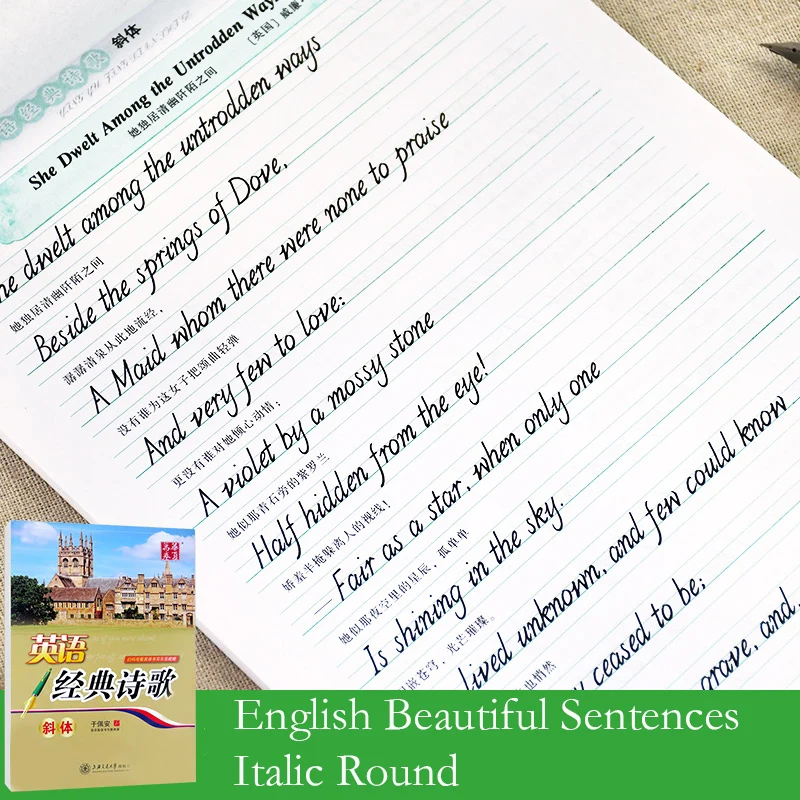 经典诗歌 斜体
She Dwelt Among the Untrodden Ways
[英国]威廉
她独居清幽阡陌之间
he dwelt among the untrodden ways
她独居清幽阡陌之间
Beside the springs of Dove,
潺潺清泉从此地流经,
A Maid whom there were none to praise
没有谁为这女子把颂曲轻弹
And very few to love:
更没有谁对她倾心动情;
A violet by a mossy stone
她似那青石旁的紫罗兰
Half hidden from the eye!
娇羞半掩躲离人的视线!
—Fair as a star, when only one
她似那夜空里的星辰，孤单单
Is shining in the sky.
嵌苍穹，光芒璀璨。
lived unknown, and few could know
也悄然
y ceased to be;
grave, and,
英语
经典诗歌
斜体
于佩安
English Beautiful Sentences
Italic Round